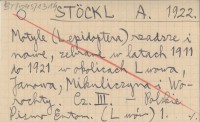 STÖCKL A. 1922.
Motyle (Lepidoptera) rzadsze i
nowe, zebrane w latach 1911
do 1921 w okolicach Lwowa,
Janowa, Mikuliczyna i Wo-
rochty. Cz. III. – Polskie
Pismo Entom. (Lwów) 1.